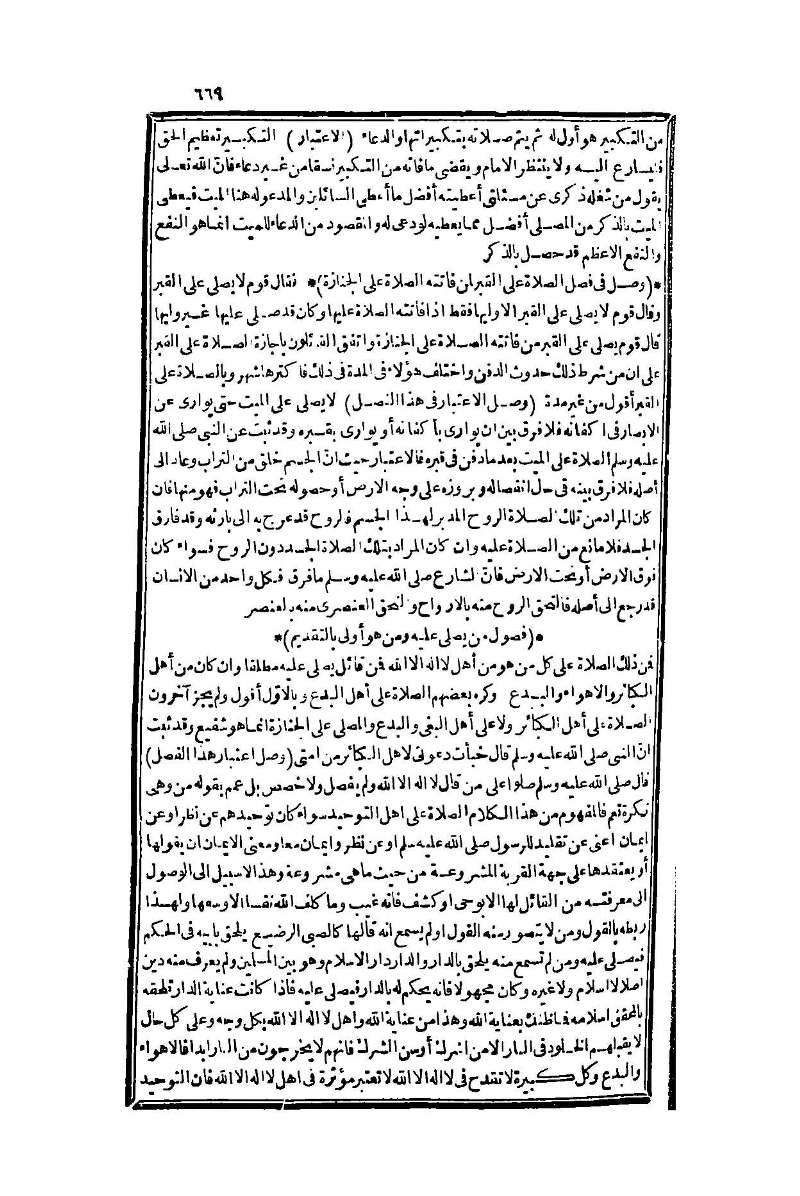 ٦٦٩
من التكبير هو أول له ثم يتم صلاته بتكبيراتهم او الدعاء (الاعتبار) التكبير تعظيم الحق
فيسارع اليه ولا ينتظر الامام ويقضى ما فاته من التكبير نسقا من غير دعاء فان الله تعالى
يقول من شغله ذكرى عن مسئلتى أعطيته أفضل ما أعطى السائلين والمدعو له هنا الميت فيعطى
الميت بالذكر من المصلى أفضل مما يعطيه لو دعى له والمقصود من الدعاء للميت انما هو النفع
والنفع الاعظم قد حصل بالذكر
*(وصل فى فصل الصلاة على القبر لمن فاتته الصلاة على الجنازة)* فقال قوم لا يصلى على القبر
وقال قوم لا يصلى على القبر الا وليها فقط اذا فاتته الصلاة عليها وكان قد صلى عليها غير وليها
قال قوم يصلى على القبر من فاتته الصلاة على الجنازة واتفق القائلون باجازة الصلاة على القبر
على ان من شرط ذلك حدوث الدفن واختلف هؤلاء فى المدة فى ذلك فاكثرها شهر وبالصلاة على
القبر أقول من غير مدة (وصل الاعتبار فى هذا الفصل) لا يصلى على الميت حتى يوارى عن
الابصار فى اكفانه فلا فرق بين ان يوارى بأكفانه أو يوارى بقبره وقد ثبت عن النبى صلى الله
عليه وسلم الصلاة على الميت بعد ما دفن فى قبره فالاعتبار حيث انّ الجسم خلق من التراب وعاد الى
أصله فلا فرق بينه فى حال انفصاله وبروزه على وجه الارض أو حصوله تحت التراب فهو منها فان
كان المراد من تلك الصلاة الروح المدبر لهذا الجسم فالروح قد عرج به الى بارئه وقد فارق
الجسد فلا مانع من الصلاة عليه وان كان المراد بتلك الصلاة الجسد دون الروح فسواء كان
فوق الارض أو تحت الارض فانّ الشارع صلى الله عليه وسلم ما فرق فكل واحد من الانسان
قد رجع الى أصله فالتحق الروح منه بالارواح والتحق العنصرى منه بالعنصر
*(فصول من يصلى عليه ومن هو أولى بالتقديم)*
فمن ذلك الصلاة على كل من هو من أهل لا اله الا الله فمن قائل يصلى عليه مطلقا وان كان من أهل
الكبائر والاهواء والبدع وكره بعضهم الصلاة على أهل البدع وبالاوّل أقول ولم يجز آخرون
الصلاة على أهل الكبائر ولا على أهل البغى والبدع والمصلى على الجنازة انما هو شفيع وقد ثبت
انّ النبى صلى الله عليه وسلم قال خبأت دعوتى لاهل الكبائر من امتى (وصل اعتبار هذا الفصل)
قال صلى الله عليه وسلم صلوا على من قال لا اله الا الله ولم يفصل ولا خصص بل عمم بقوله من وهى
نكرة تعم فالمفهوم من هذا الكلام الصلاة على اهل التوحيد سواء كان توحيدهم عن نظر او عن
ايمان اعنى عن تقليد للرسول صلى الله عليه وسلم او عن نظر وايمان معا ومعنى الايمان ان يقولها
أو يعتقدها على جهة القربة المشروعة من حيث ما هى مشروعة وهذا لا سبيل الى الوصول
الى معرفته من القائل لها الا بوحى او كشف فانه غيب وما كلف الله نفسا الا وسعها ولهذا
ربطه بالقول ومن لا يتصور منه القول او لم يسمع انه قالها كالصبى الرضيع يلحق بابيه فى الحكم
فيصلى عليه ومن لم تسمع منه يلحق بالدار والدار دار الاسلام وهو بين المسلمين ولم يعرف منه دين
اصلا لا اسلام ولا غيره وكان مجهولا فانه يحكم له بالدار فيصلى عليه فاذا كانت عناية الدار تلحقه
بالمحقق اسلامه فما ظنك بعناية الله وهذا من عناية الله واهل لا اله الا الله بكل وجه وعلى كل حال
لا يقبلهم الخلود فى النار الا من اشرك أو سن الشرك فانهم لا يخرجون من النار ابدا فالاهواء
والبدع وكل كبيرة لا تقدح فى لا اله الا الله لا تعتبر مؤثرة فى اهل لا اله الا الله فان التوحيد